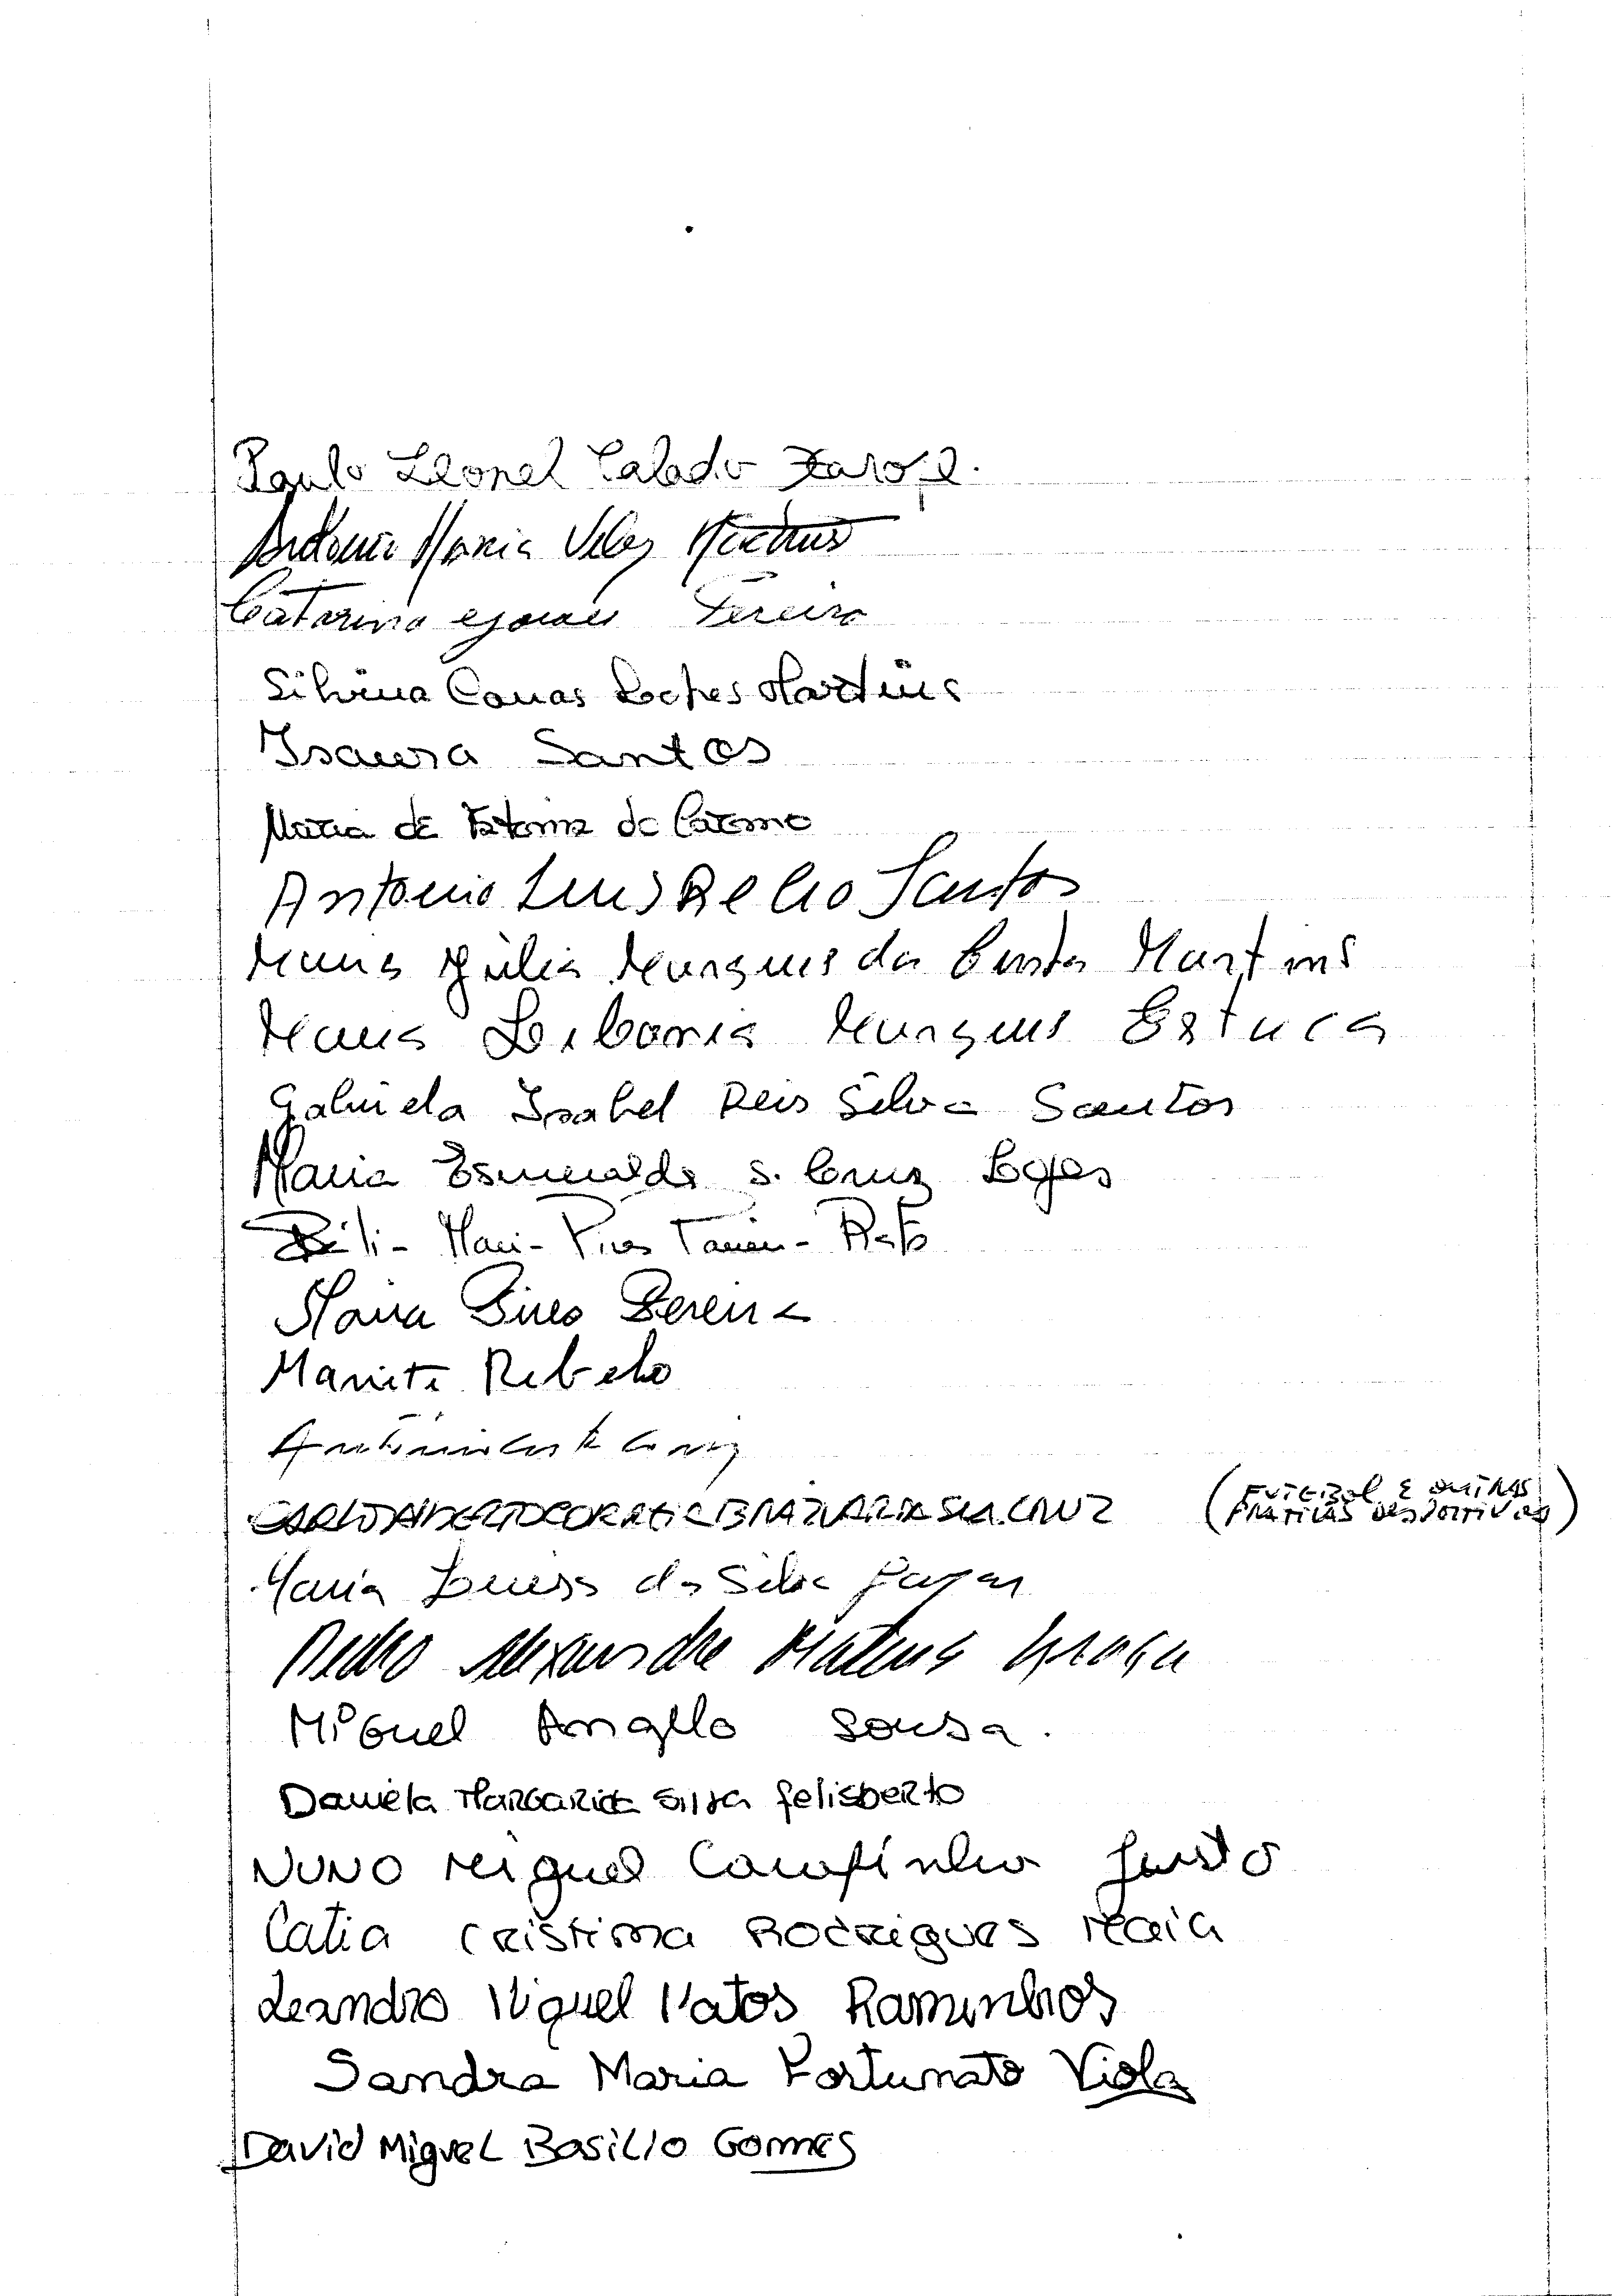 Paulo Leonel Calado Xarope.
António Maria Velez
Catarina Gomes Pereira
Silvina Canas Roches Martins
Isaura Santos
Maria de Fatima do Carmo
Antonio Luis Relio Santos
Maria Júlia Marques da Costa Martins
Maria Libania Marques Estuca
Gabriela Isabel Reis Silva Santos
Maria Esmeralda S. Cruz Lopes
Maria Pires
Maria Pires Pereira
Mariete Rebelo
António
CRUZ (FUTEBOL E OUTRAS
PRATICAS DESPORTIVAS)
Maria Luisa da Silva
Pedro Alexandre Mateus
Miguel Angelo Sousa.
Daniela Margarida Silva Felisberto
Nuno Miguel Campinho Justo
Catia Cristina Rodrigues Maia
Leandro Miguel Matos Raminhos
Sandra Maria Fortunato Viola
David Miguel Basilio Gomes